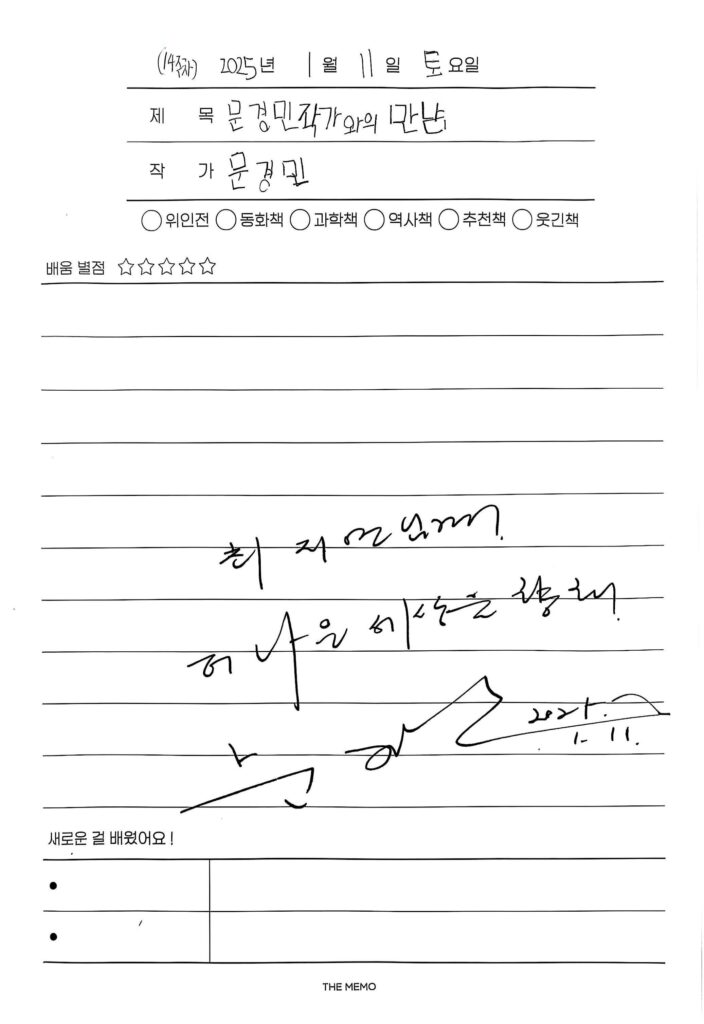 (14주차) 2025년 1월 11일 토요일
제 목 문경민작가와의 만남
작 가 문경민
○위인전 ○동화책 ○과학책 ○역사책 ○추천책 ○웃긴책
배움 별점 ☆☆☆☆☆
최지연님께.
더 나은 세상을 향해.
2025.
1. 11.
새로운 걸 배웠어요!
•
•
THE MEMO